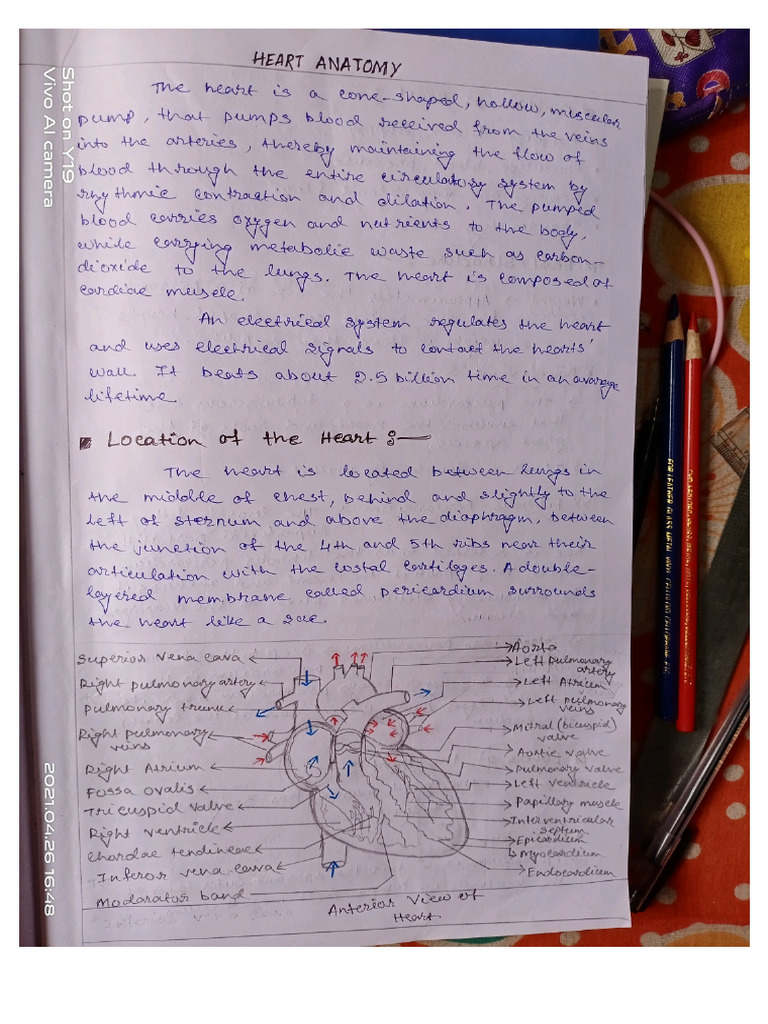 HEART ANATOMY
The heart is a cone-shaped, hollow, muscular
pump, that pumps blood received from the veins
into the arteries, thereby maintaining the flow of
blood through the entire circulatory system by
rhythmic contraction and dilation. The pumped
blood carries oxygen and nutrients to the body,
while carrying metabolic waste such as carbon-
dioxide to the lungs. The heart is composed of
cardiac muscle.
An electrical system regulates the heart
and uses electrical signals to contact the hearts'
wall It beats about 2.5 billion time in an average
lifetime
Location of the Heart :-
The heart is located between lungs in
the middle of chest, behind and slightly to the
left of sternum and above the diaphragm, between
the junction of the 4th and 5th ribs near their
articulation with the costal cartilages. A double-
layered membrane called pericardium surrounds
the heart like a sac.
Superior vena cava
Right pulmonary artery
Pulmonary trunk
Right pulmonary
veins
Right Atrium
Fossa ovalis
Tricuspid valve
Right ventricle
Chordae tendineae
Inferor vena cava
Modorator band
Aorta
Left pulmonary
artery
Left Atrium
Left pulmonary
veins
Mitral (bicuspid)
valve
Aortic valve
Pulmonary valve
Left ventricle
Papillary muscle
Interventricular
septum
Epicardium
Myocardium
Endocardium
Anterior View of
Heart
Shot on Y19
Vivo AI camera
2021.04.26 16:48